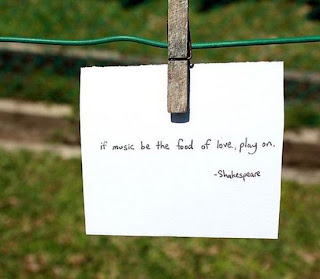 if music be the food of love, play on.
-Shakespeare